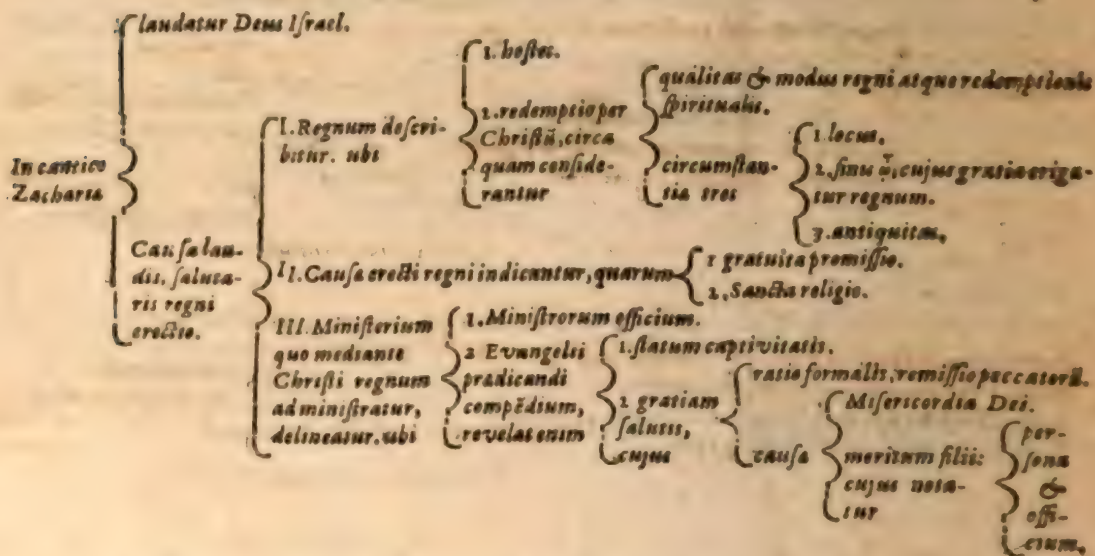 laudatur Deus Iſrael.
In cantico
Zacharia
Cauſa lau-
dis, ſaluta-
ris regni
erectio.
I. Regnum deſcri-
bitur. ubi
1. hoſtes.
2. redemptio per
Chriſtũ, circa
quam conſide-
rantur
qualitas & modus regni atque redemptionis
ſpiritualis.
circumſtan-
tia tres
1. locus.
2. finis cujus gratia eriga-
tur regnum.
3. antiquitas.
II. Cauſa erecti regni indicantur, quarum
1 gratuita promiſſio.
2, Sancta religio.
III. Miniſterium
quo mediante
Chriſti regnum
adminiſtratur,
delineatur. ubi
1. Miniſtrorum officium.
2 Evangelii
prædicandi
compẽdium,
revelat enim
1. ſtatum captivitatis.
2 gratiam
ſalutis,
cujus
ratio formalis, remiſſio peccatorũ.
cauſa
Miſericordia Dei.
meritum filii:
cujus nota-
tur
per-
ſona
&
offi-
cium.